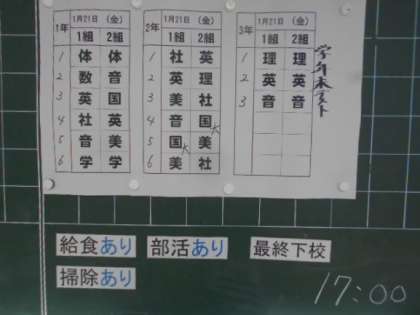 1年 1月21日 (金)
1組 2組
1 体 体
2 数 音
3 英 国
4 社 英
5 音 美
6 学 学
2年 1月21日 (金)
1組 2組
1 社 英
2 英 理
3 美 社
4 音 国K
5 国K 美
6 美 社
3年 1月21日 (金)
1組 2組
1 理 理
2 英 英
3 音 音
学年末テスト
給食あり 部活あり 最終下校
掃除あり 17:00